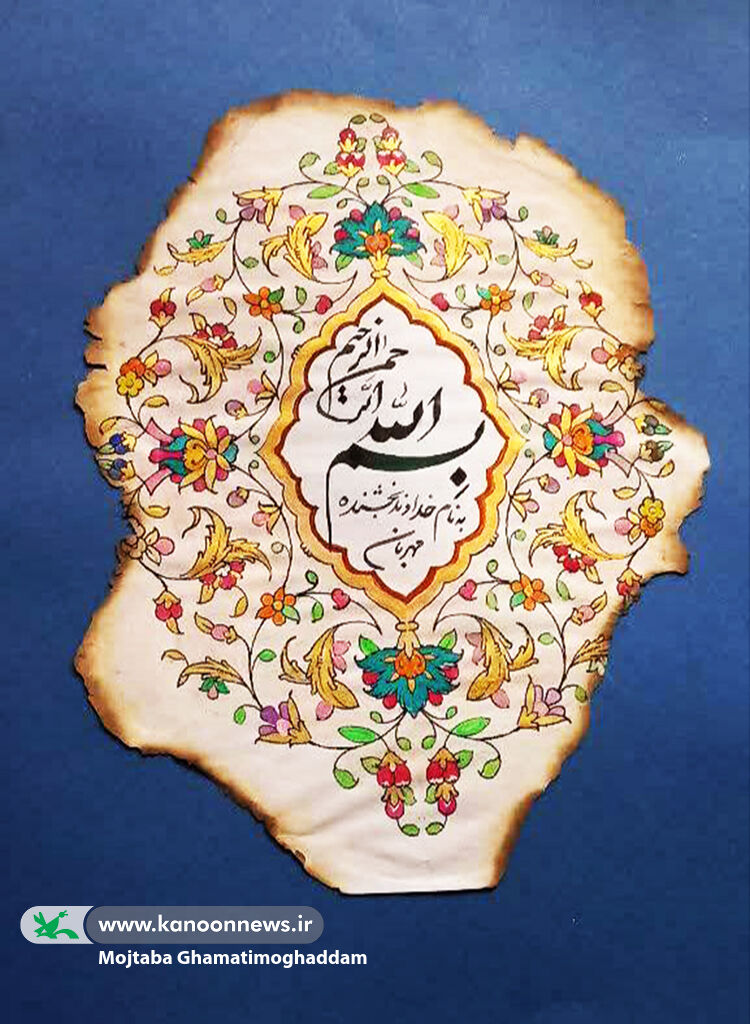 بسم الله الرحمن الرحیم
به نام خداوند بخشنده
مهربان
www.kanoonnews.ir
Mojtaba Ghamatimoghaddam